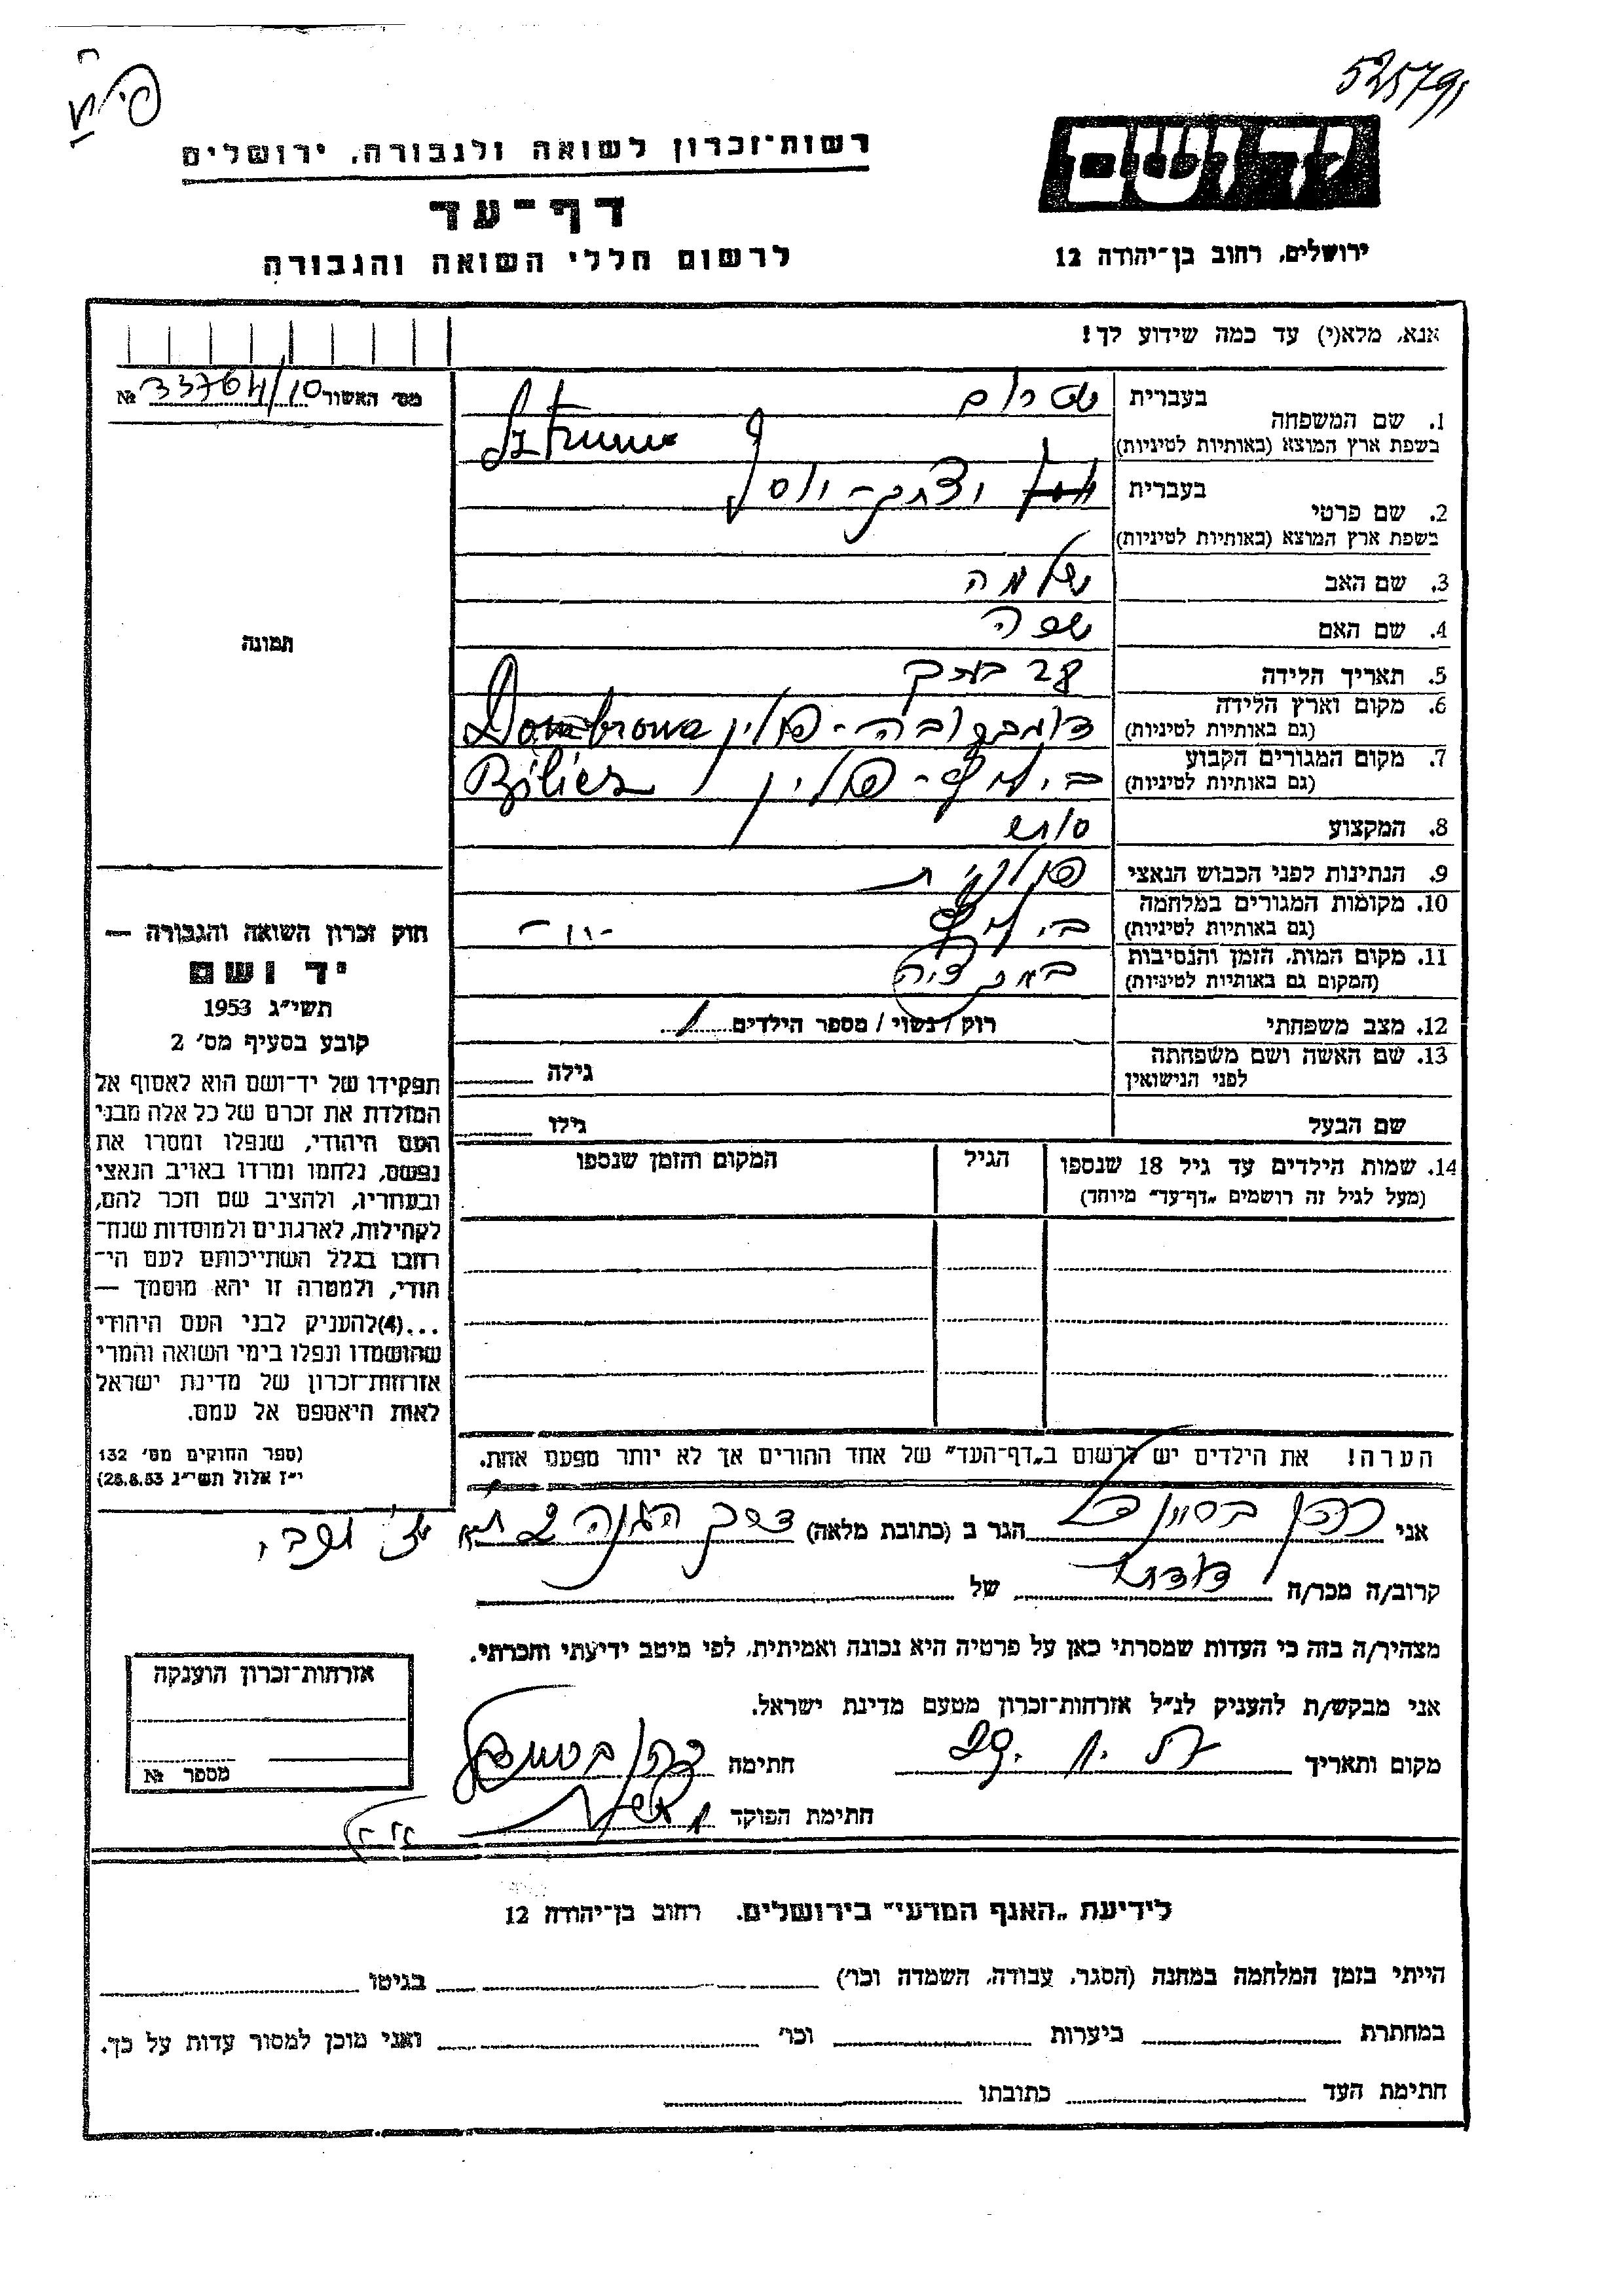 525791
יד ושם
ירושלים, רחוב בן־יהודה 12
רשות־זכרון לשואה ולגבורה, ירושלים
דף־עד
לרשום חללי השואה והגבורה
אנא, מלא(י) עד כמה שידוע לך!
מס׳ האשור 33764/10 №
1. שם המשפחה
בעברית שטרום
בשפת ארץ המוצא (באותיות לטיניות)
2. שם פרטי
בעברית יצחק־יוסף
בשפת ארץ המוצא (באותיות לטיניות)
3. שם האב שלמה
4. שם האם
5. תאריך הלידה 28 בערך
6. מקום וארץ הלידה דומברובה־פולין Dombrowa
(גם באותיות לטיניות)
7. מקום המגורים הקבוע פולין
(גם באותיות לטיניות)
8. המקצוע סוחר
9. הנתינות לפני הכבוש הנאצי פולנית
10. מקומות המגורים במלחמה -״-
(גם באותיות לטיניות)
11. מקום המות, הזמן והנסיבות
(המקום גם באותיות לטיניות)
12. מצב משפחתי רוק / נשוי / מספר הילדים
13. שם האשה ושם משפחתה גילה
לפני הנישואין
שם הבעל גילו
14. שמות הילדים עד גיל 18 שנספו הגיל המקום והזמן שנספו
(מעל לגיל זה רושמים „דף־עד״ מיוחד)
הערה! את הילדים יש לרשום ב„דף־העד״ של אחד ההורים אך לא יותר מפעם אחת.
תמונה
חוק זכרון השואה והגבורה —
יד ושם
תשי״ג 1953
קובע בסעיף מס׳ 2
תפקידו של יד־ושם הוא לאסוף אל
המולדת את זכרם של כל אלה מבני
העם היהודי, שנפלו ומסרו את
נפשם, נלחמו ומרדו באויב הנאצי
ובעוזריו, ולהציב שם וזכר להם,
לקהילות, לארגונים ולמוסדות שנח־
רבו בגלל השתייכותם לעם הי־
הודי, ולמטרה זו יהא מוסמך —
...(4)להעניק לבני העם היהודי
שהושמדו ונפלו בימי השואה והמרי
אזרחות־זכרון של מדינת ישראל
לאות היאספם אל עמם.
(ספר החוקים מס׳ 132
י״ז אלול תשי״ג 28.8.53)
אני הגר ב (כתובת מלאה) דרך הגנה
קרוב/ה מכר/ה של
מצהיר/ה בזה כי העדות שמסרתי כאן על פרטיה היא נכונה ואמיתית, לפי מיטב ידיעתי והכרתי.
אני מבקש/ת להעניק לנ״ל אזרחות־זכרון מטעם מדינת ישראל.
מקום ותאריך חתימה
חתימת הפוקד
אזרחות־זכרון הוענקה
מספר №
לידיעת „האגף המדעי״ בירושלים, רחוב בן־יהודה 12
הייתי בזמן המלחמה במחנה (הסגר, עבודה, השמדה וכו׳) בגיטו
במחתרת ביערות וכו׳ ואני מוכן למסור עדות על כך.
חתימת העד כתובתו